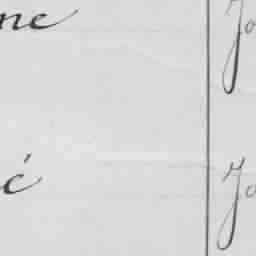 ne Jo
é Jo